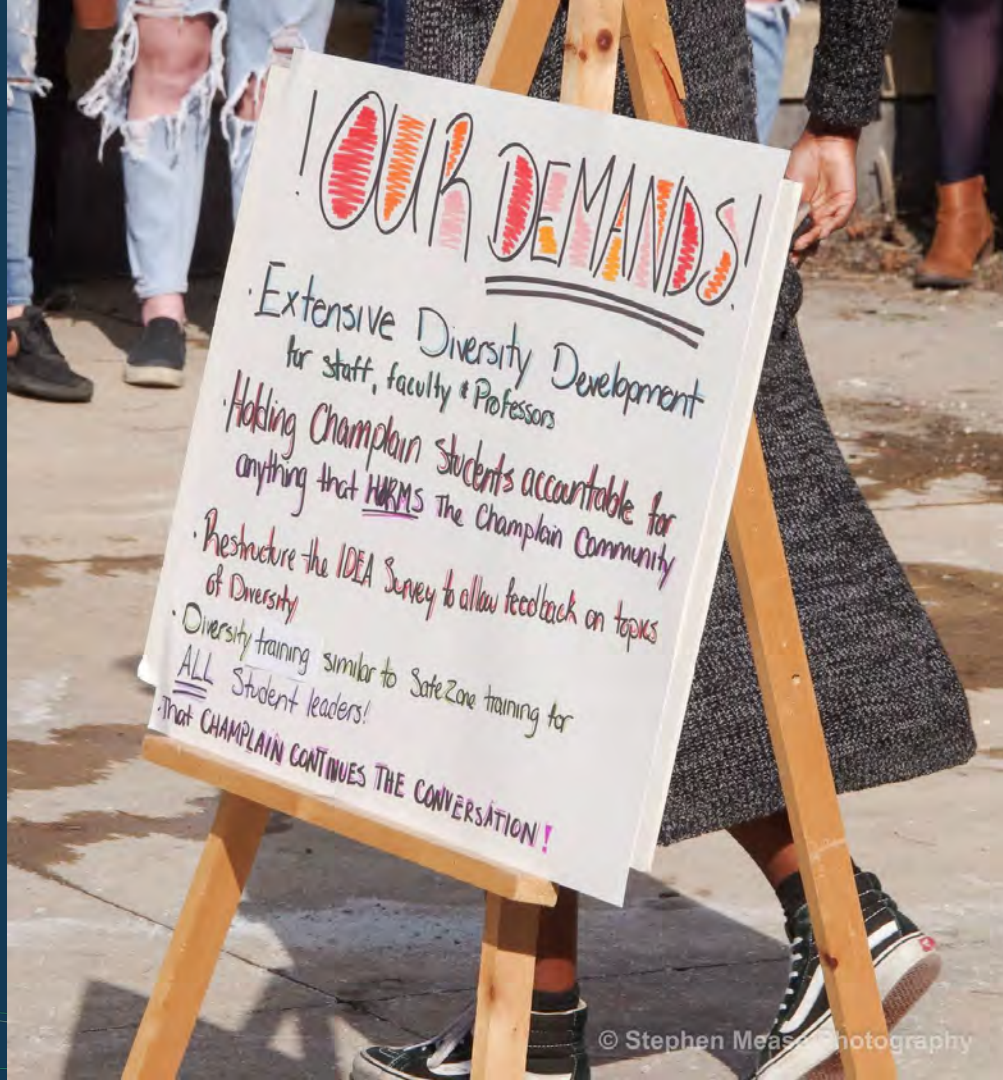 ! OUR DEMANDS!
· Extensive Diversity Development
for staff, faculty & Professors
· Holding Champlain Students accountable for
anything that HARMS The Champlain Community
· Restructure the IDEA Survey to allow feedback on topics
of Diversity
· Diversity training similar to SafeZone training for
ALL Student leaders!
· That CHAMPLAIN CONTINUES THE CONVERSATION!
© Stephen Mease Photography